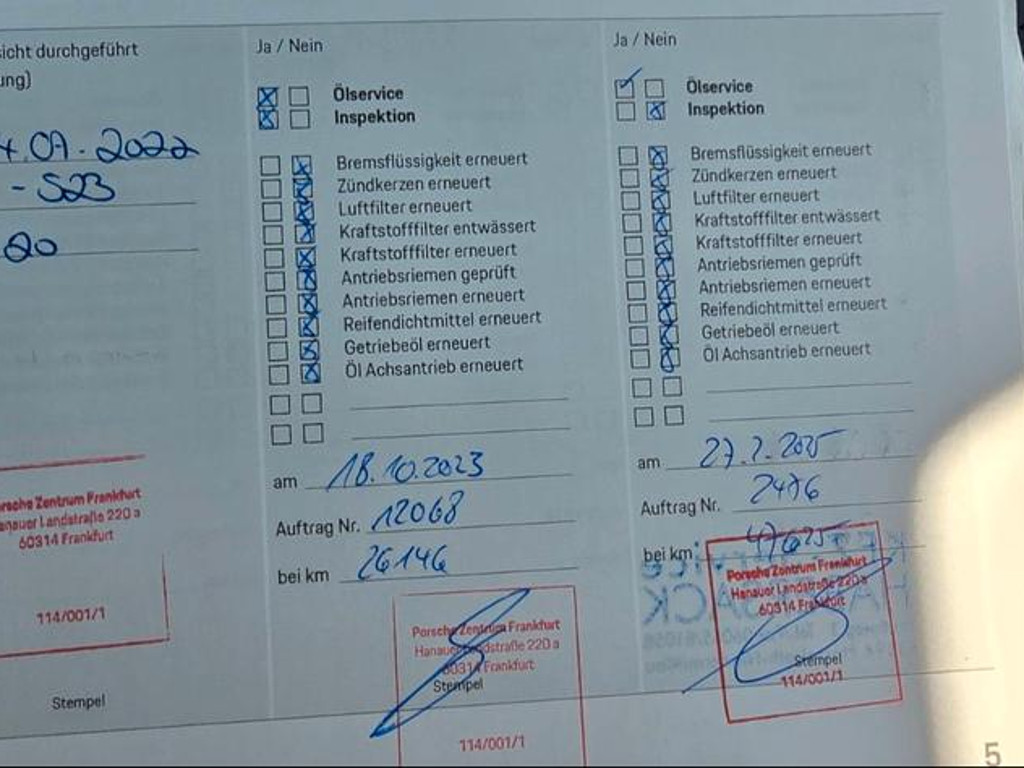 sicht durchgeführt
ung)
4.07.2022
- S23
20
Porsche Zentrum Frankfurt
Hanauer Landstraße 220 a
60314 Frankfurt
114/001/1
Stempel
Ja / Nein
Ölservice
Inspektion
Bremsflüssigkeit erneuert
Zündkerzen erneuert
Luftfilter erneuert
Kraftstofffilter entwässert
Kraftstofffilter erneuert
Antriebsriemen geprüft
Antriebsriemen erneuert
Reifendichtmittel erneuert
Getriebeöl erneuert
Öl Achsantrieb erneuert
am 18.10.2023
Auftrag Nr. 12068
bei km 26146
Porsche Zentrum Frankfurt
Hanauer Landstraße 220 a
60314 Frankfurt
Stempel
114/001/1
Ja / Nein
Ölservice
Inspektion
Bremsflüssigkeit erneuert
Zündkerzen erneuert
Luftfilter erneuert
Kraftstofffilter entwässert
Kraftstofffilter erneuert
Antriebsriemen geprüft
Antriebsriemen erneuert
Reifendichtmittel erneuert
Getriebeöl erneuert
Öl Achsantrieb erneuert
am 27.2.2025
Auftrag Nr. 2476
bei km 47625
Porsche Zentrum Frankfurt
Hanauer Landstraße 220 a
60314 Frankfurt
Stempel
114/001/1
5